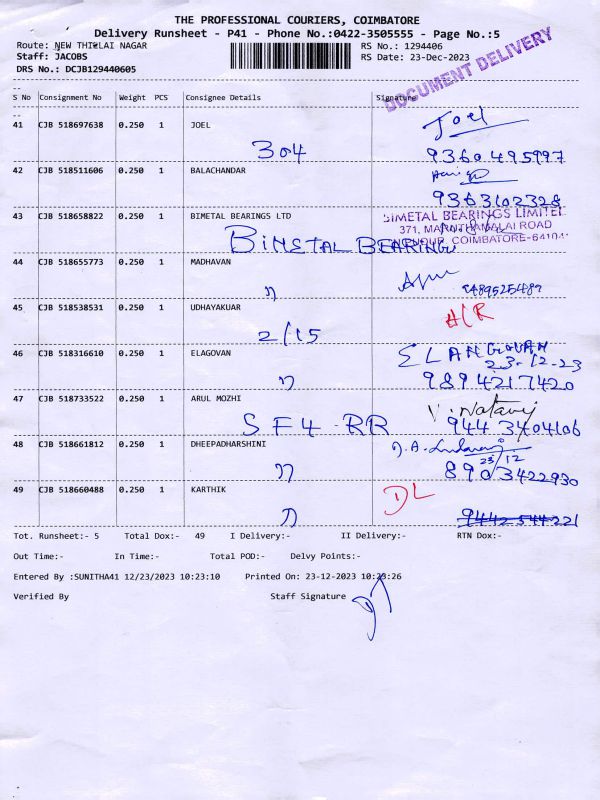 THE PROFESSIONAL COURIERS, COIMBATORE
Delivery Runsheet - P41 - Phone No.:0422-3505555 - Page No.:5
Route: NEW THILLAI NAGAR RS No.: 1294406
Staff: JACOBS RS Date: 23-Dec-2023
DRS No.: DCJB129440605
DOCUMENT DELIVERY
S No Consignment No Weight PCS Consignee Details Signature
41 CJB 518697638 0.250 1 JOEL Joel
304 9360495997
42 CJB 518511606 0.250 1 BALACHANDAR
9363102328
43 CJB 518658822 0.250 1 BIMETAL BEARINGS LTD BIMETAL BEARINGS LIMITED
371, MARUTHAMALAI ROAD
BIMETAL BEARING COIMBATORE-641041
44 CJB 518655773 0.250 1 MADHAVAN
" 9489525489
45 CJB 518538531 0.250 1 UDHAYAKUAR
2/15
46 CJB 518316610 0.250 1 ELAGOVAN ELANGOVAN
23-12-23
" 9894217420
47 CJB 518733522 0.250 1 ARUL MOZHI V. Nataraj
SF4-RR 9443404106
48 CJB 518661812 0.250 1 DHEEPADHARSHINI
23/12
" 8903422930
49 CJB 518660488 0.250 1 KARTHIK DL
" 9442544221
Tot. Runsheet:- 5 Total Dox:- 49 I Delivery:- II Delivery:- RTN Dox:-
Out Time:- In Time:- Total POD:- Delvy Points:-
Entered By :SUNITHA41 12/23/2023 10:23:10 Printed On: 23-12-2023 10:23:26
Verified By Staff Signature